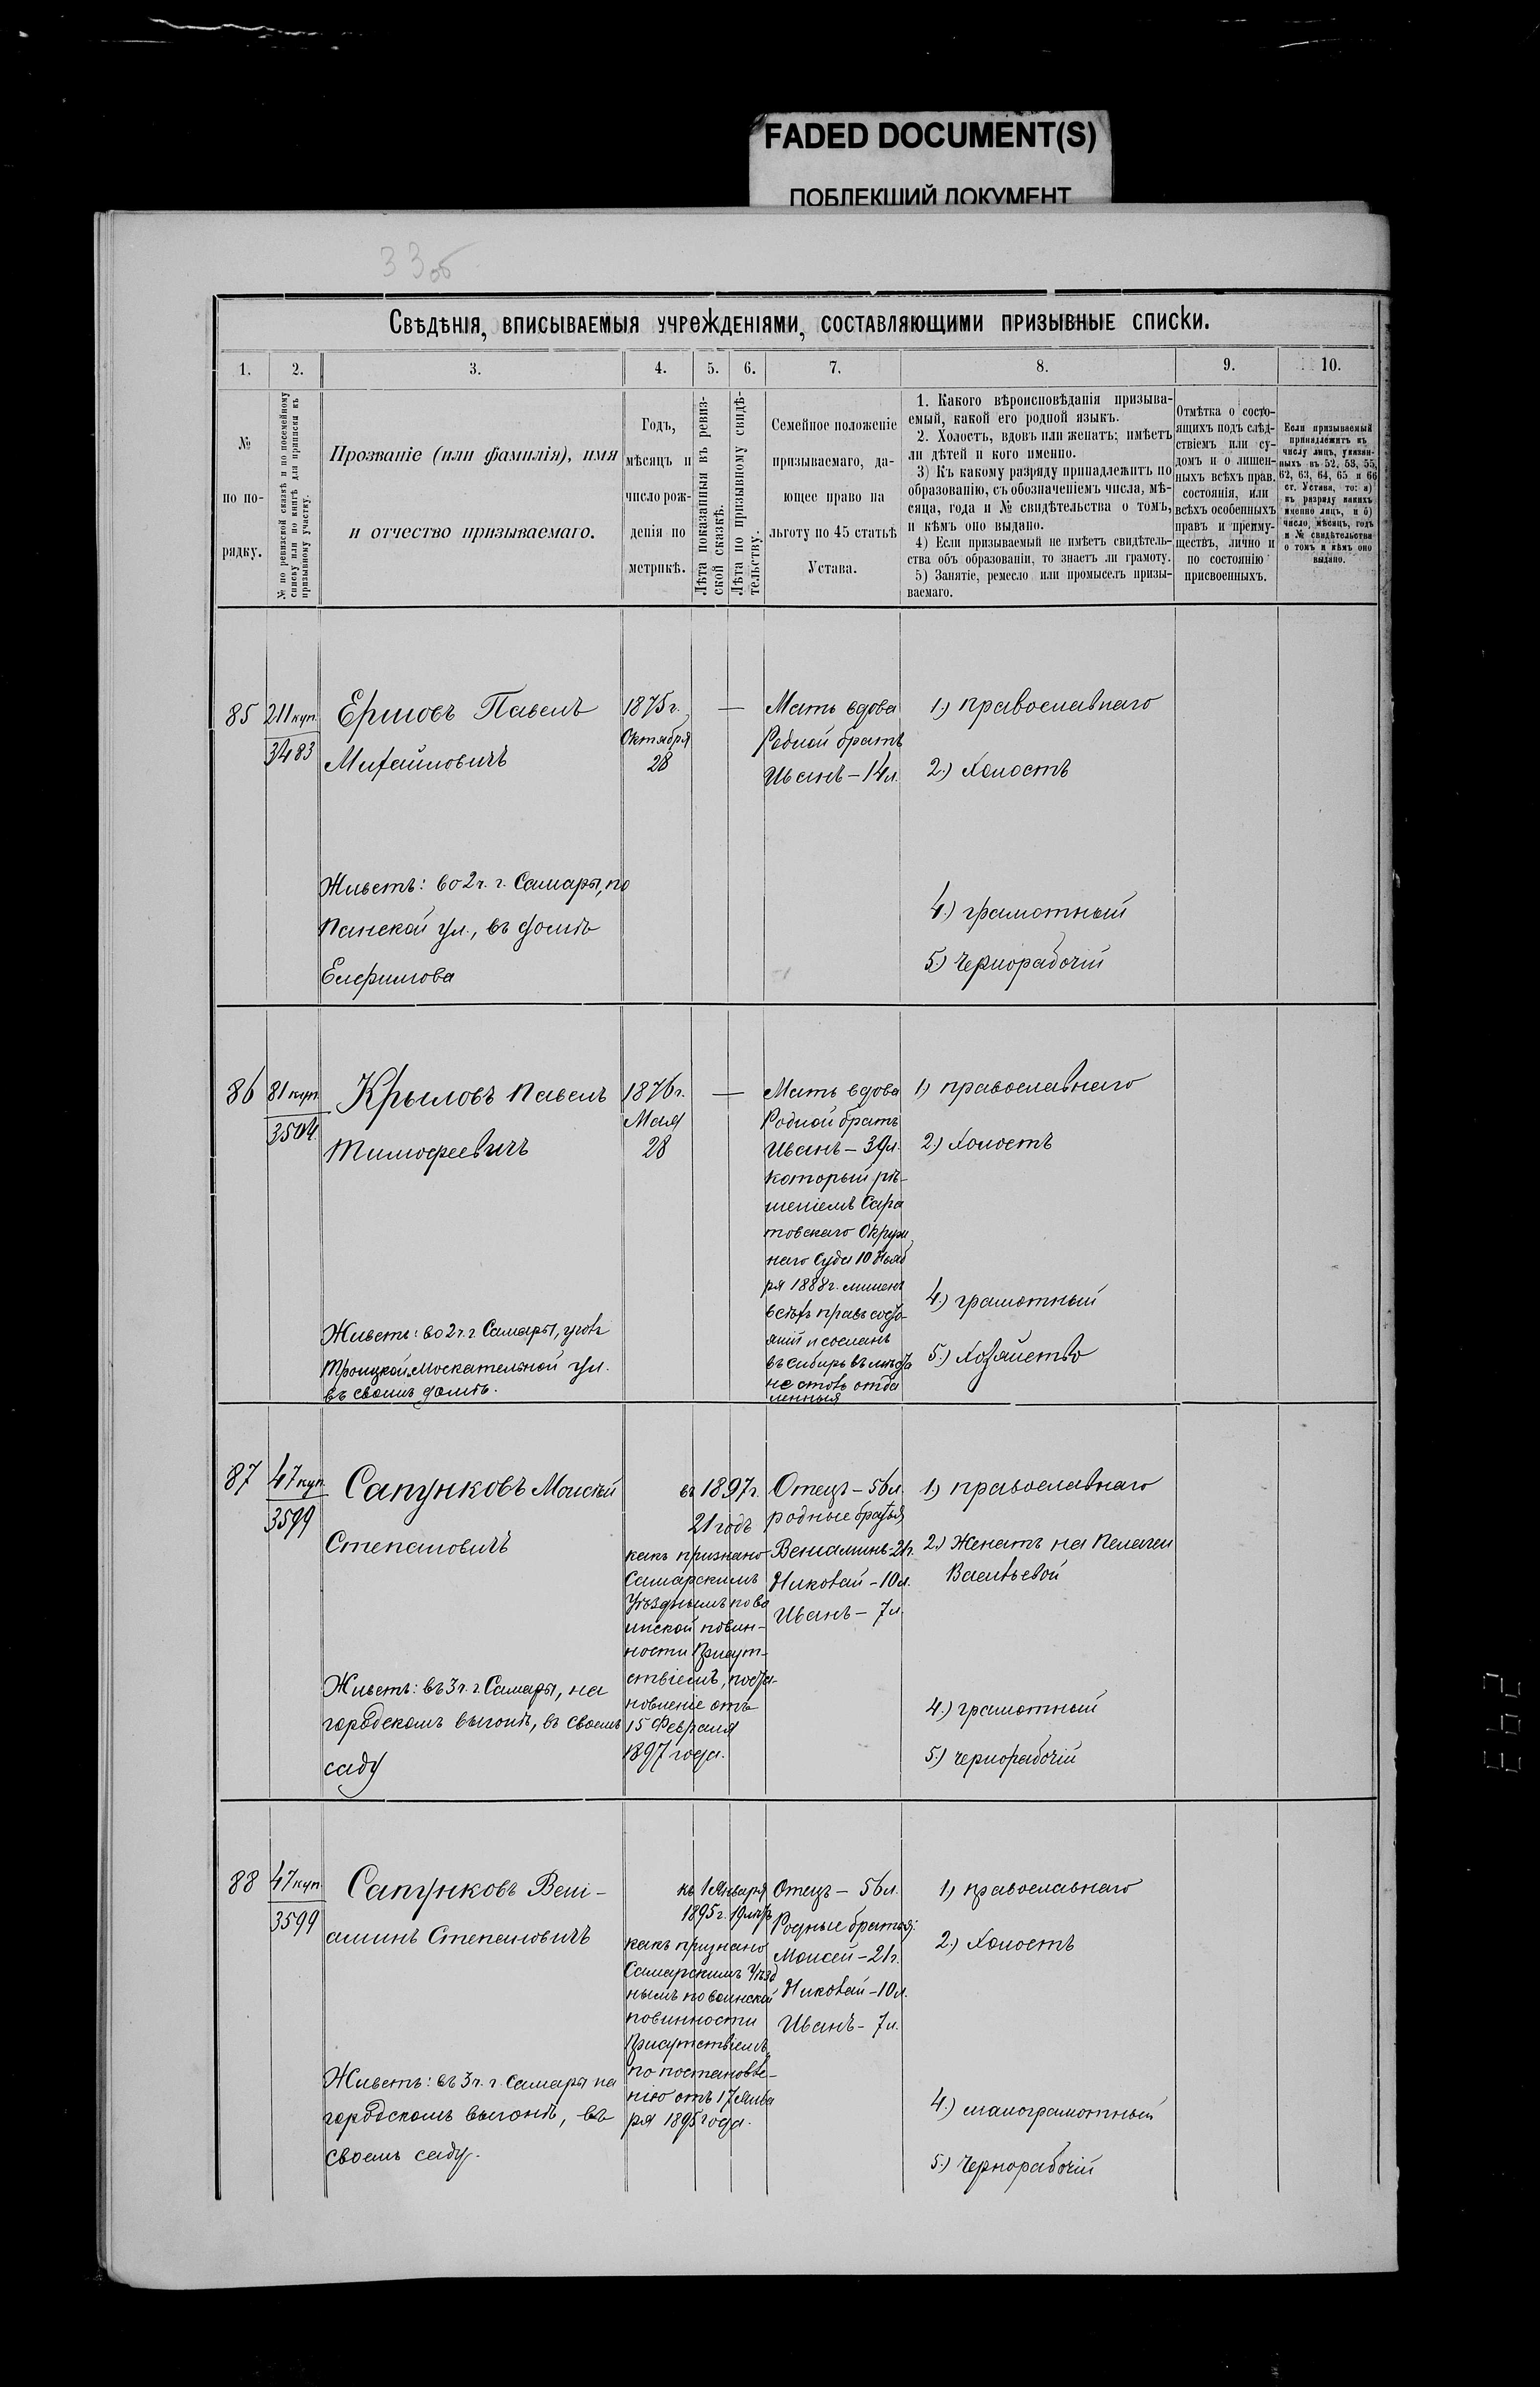 FADED DOCUMENT(S)
ПОБЛЕКШИЙ ДОКУМЕНТ
33об
Свѣдѣнія, вписываемыя учрежденіями, составляющими призывные списки.
1. 2. 3. 4. 5. 6. 7. 8. 9. 10.
№
по по-
рядку.
№ по ревизской сказкѣ и по посемейному
списку или по книгѣ для приписки къ
призывному участку.
Прозваніе (или фамилія), имя
и отчество призываемаго.
Годъ,
мѣсяцъ и
число рож-
денія по
метрикѣ.
Лѣта показанныя въ ревиз-
ской сказкѣ.
Лѣта по призывному свидѣ-
тельству.
Семейное положеніе
призываемаго, да-
ющее право на
льготу по 45 статьѣ
Устава.
1. Какого вѣроисповѣданія призыва-
емый, какой его родной языкъ.
2. Холостъ, вдовъ или женатъ; имѣетъ
ли дѣтей и кого именно.
3) Къ какому разряду принадлежитъ по
образованію, съ обозначеніемъ числа, мѣ-
сяца, года и № свидѣтельства о томъ,
и кѣмъ оно выдано.
4) Если призываемый не имѣетъ свидѣтель-
ства объ образованіи, то знаетъ ли грамоту.
5) Занятіе, ремесло или промыселъ призы-
ваемаго.
Отмѣтка о состо-
ящихъ подъ слѣд-
ствіемъ или су-
домъ и о лишен-
ныхъ всѣхъ прав.
состоянія, или
всѣхъ особенныхъ
правъ и преиму-
ществъ, лично и
по состоянію
присвоенныхъ.
Если призываемый
принадлежитъ къ
числу лицъ, указан-
ныхъ въ 52, 53, 55,
62, 63, 64, 65 и 66
ст. Устава, то: а)
къ разряду какихъ
именно лицъ, и б)
число, мѣсяцъ, годъ
и № свидѣтельства
о томъ и кѣмъ оно
выдано.
85
211 куп.
3483
Ершовъ Павелъ
Михайловичъ
Живетъ: во 2 ч. г. Самары, по
Панской ул., въ домѣ
1875 г.
Октября
28
—
Мать вдова
Родной братъ
Иванъ – 14 л.
1.) православнаго
2.) Холостъ
4.) грамотный
5.) Чернорабочій
86
81 куп.
3504.
Крыловъ Павелъ
Тимофеевичъ
Живетъ: во 2 ч. г. Самары, уголъ
Троицкой, Москательной ул.
въ своемъ домѣ.
1876 г.
Мая
28
—
Мать вдова
Родной братъ
Иванъ – 39 л.
который рѣ-
шеніемъ Сара
товскаго Окруж
наго Суда 10 Нояб
ря 1888 г. лишенъ
всѣхъ правъ состо-
яній и сосланъ
въ Сибирь въ мѣста
не столь отда
ленныя
1) православнаго
2.) Холостъ
4.) грамотный
5.) Хозяйство
87
47 куп.
3599
Сапунковъ Моисей
Степановичъ
Живетъ: въ 3 ч. г. Самары, на
городскомъ выгонѣ, въ своемъ
саду
въ 1897 г.
21 годъ
какъ признано
Самарскимъ
Уѣзднымъ по во
инской повин-
ности Присут-
ствіемъ, поста-
новленіе отъ
15 Февраля
1897 года.
Отецъ – 56 л.
родные братья
Веніаминъ-21 г.
Николай – 10 л.
Иванъ – 7 л.
1) православнаго
2.) Женатъ на Пелагеи
Васильевой
4.) грамотный
5.) чернорабочій
88
47 куп.
3599
Сапунковъ Вені-
аминъ Степановичъ
Живетъ: въ 3 ч. г. Самары на
городскомъ выгонѣ, въ
своемъ саду.
къ 1 Января
1895 г. 19 лѣтъ
какъ признано
Самарскимъ Уѣзд
нымъ по воинской
повинности
Присутствіемъ,
по постановле-
нію отъ 17 Янва
ря 1895 года.
Отецъ – 56 л.
Родные братья:
Моисей – 21 г.
Николай – 10 л.
Иванъ – 7 л.
1) православнаго
2.) Холостъ
4.) малограмотный
5.) Чернорабочій